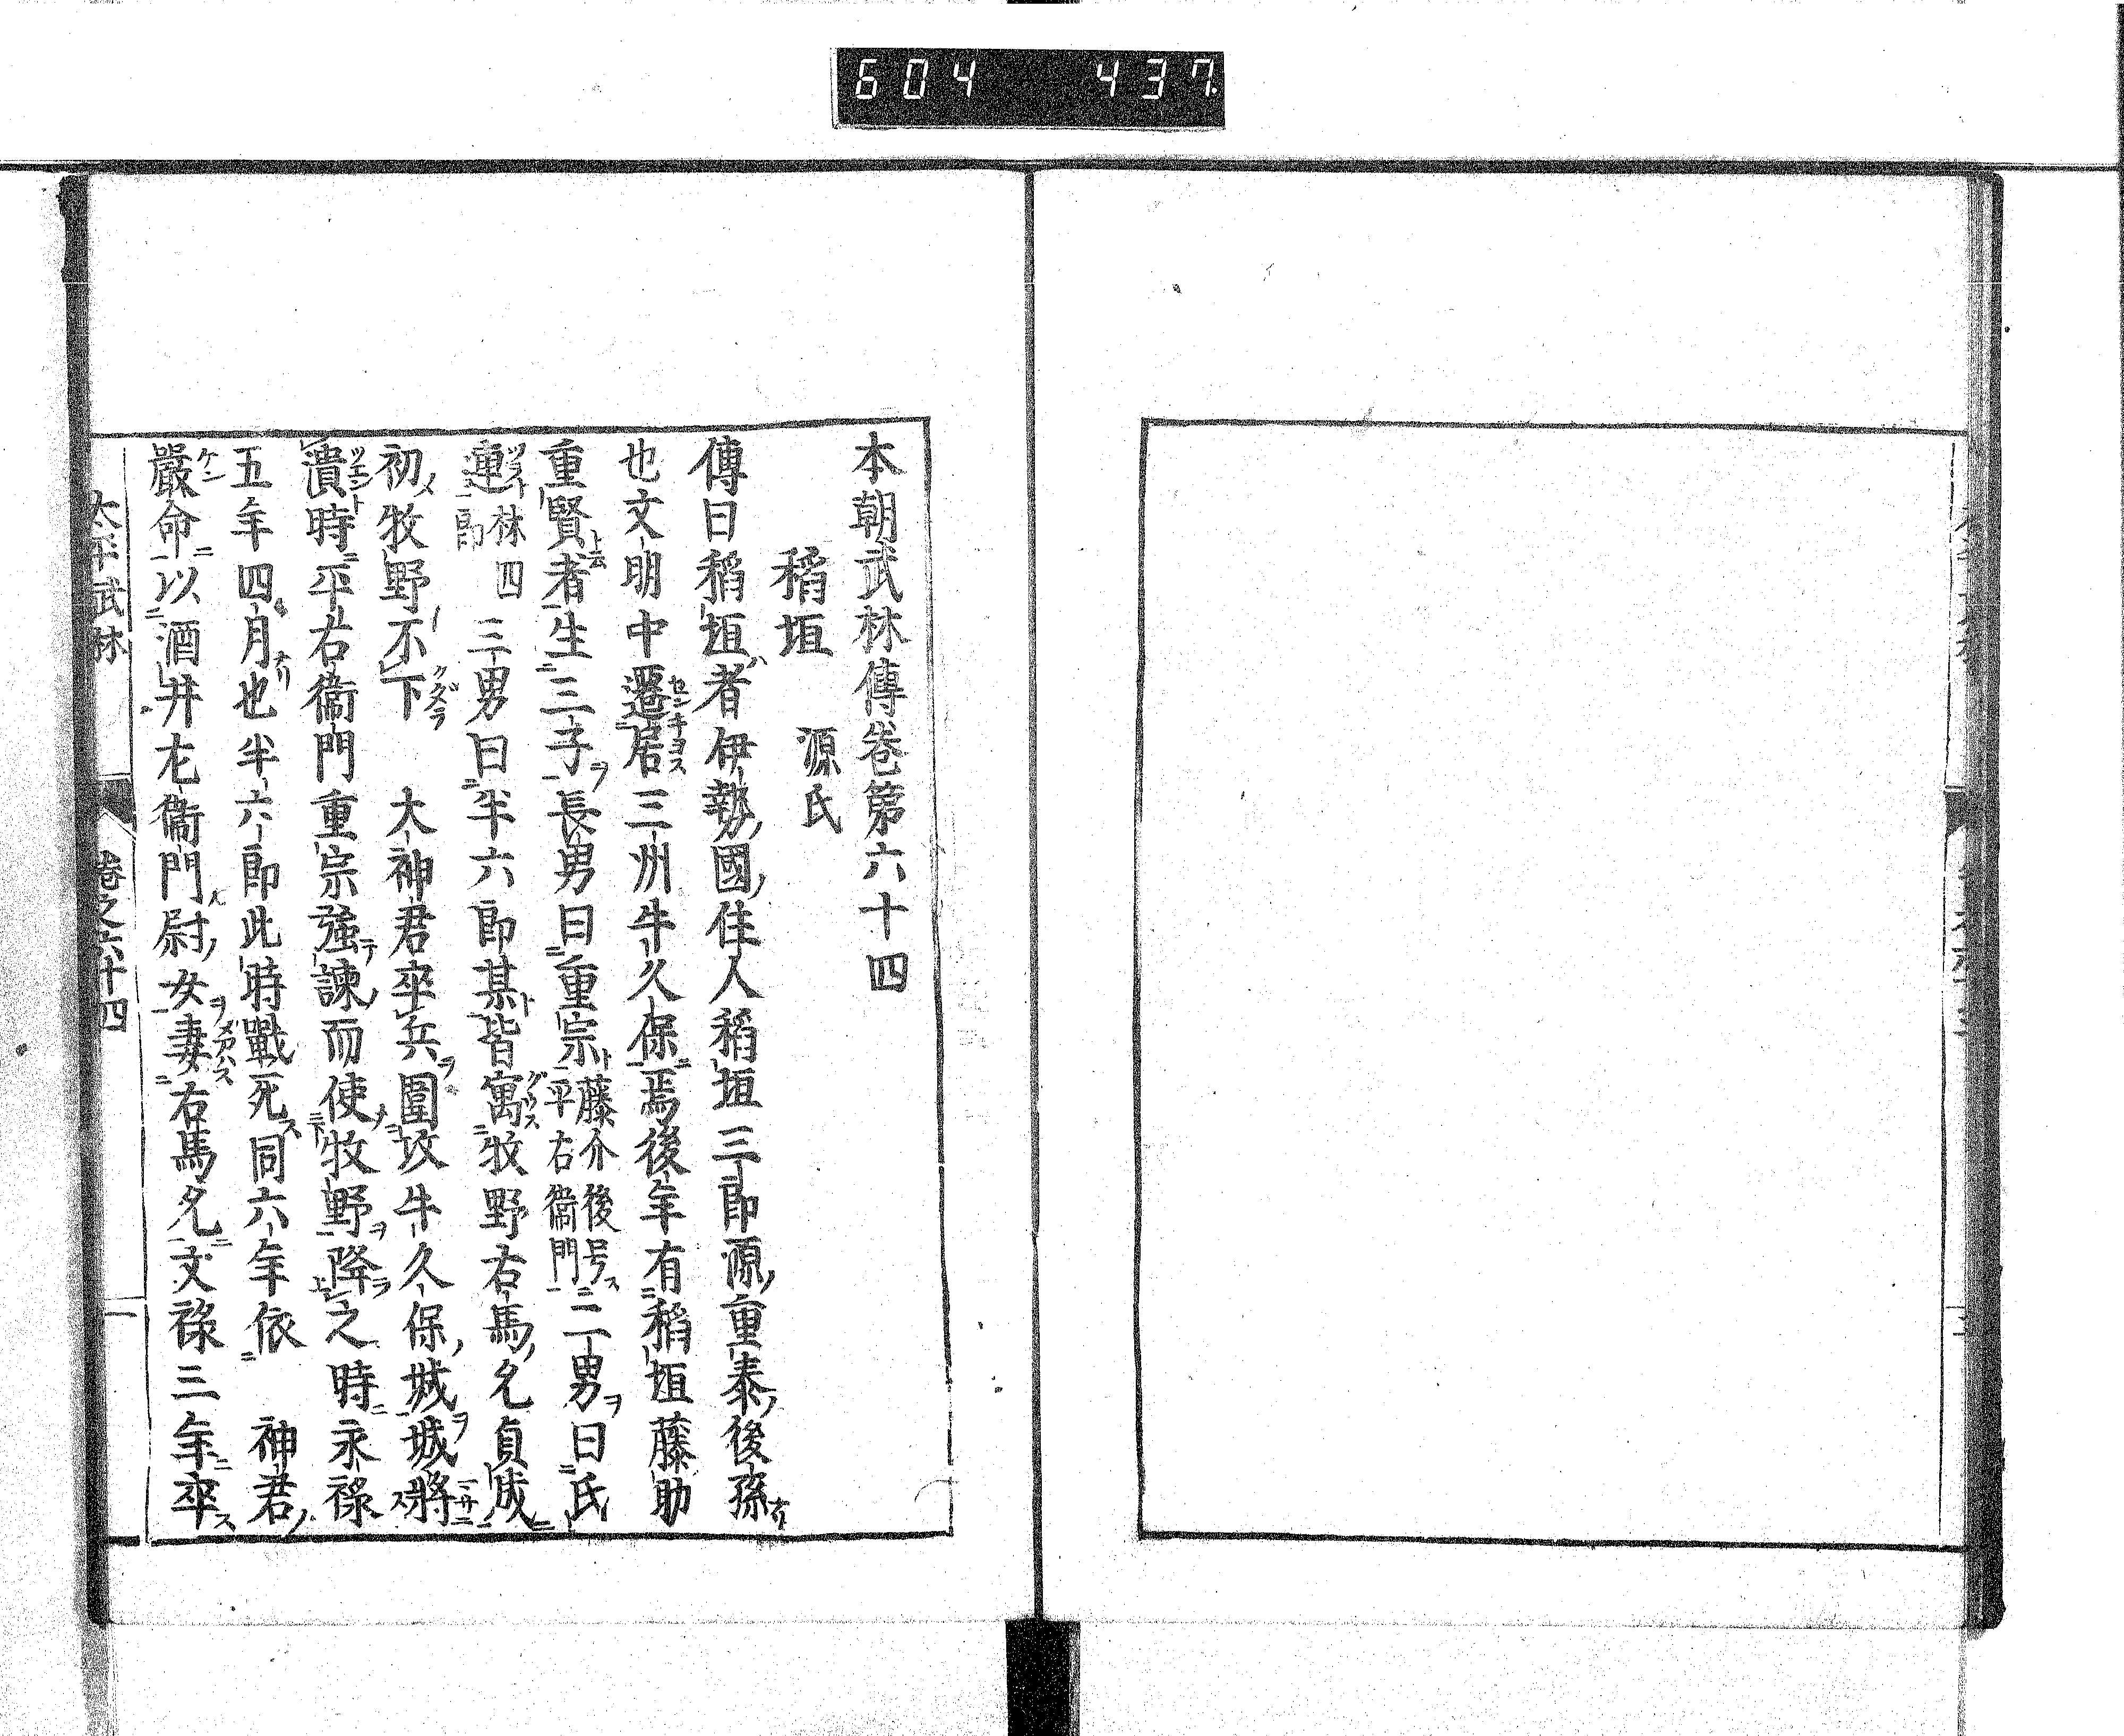 604 437
本朝武林傳卷第六十四
稻垣 源氏
傳曰稻垣者伊勢國住人稻垣三郎源重泰後孫
也文明中遷居三州牛久保焉後年有稻垣藤助
重賢者生三子長男曰重宗藤介後号平右衞門二男曰氏
連林四郎三男曰半六郎某皆寓牧野右馬允貞成
初牧野不下 大神君卒兵圍攻牛久保城城將
潰時平右衞門重宗強諫而使牧野降之時永禄
五年四月也半六郎此時戰死同六年依 神君
嚴命以酒井左衞門尉女妻右馬允文禄三年卒
本平武林 卷之六十四 一